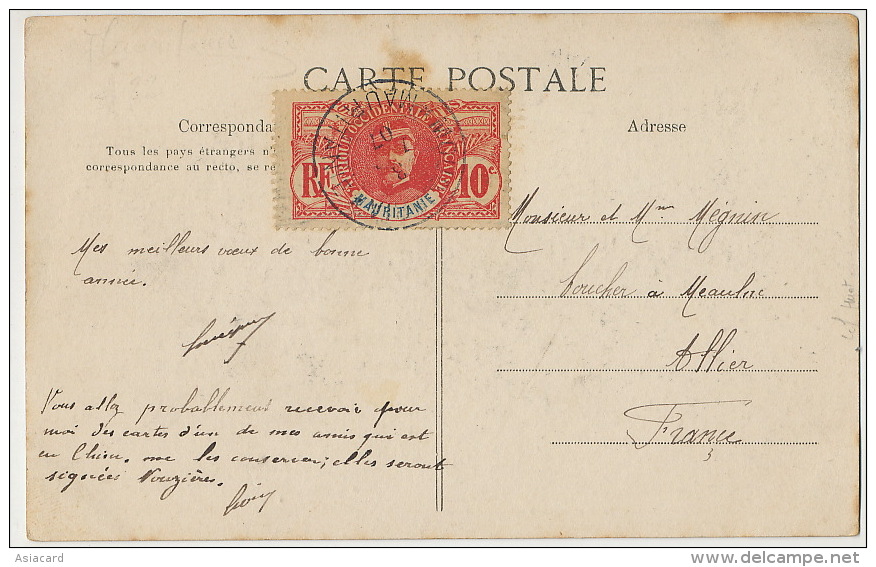 CARTE POSTALE
Corresponda
Tous les pays étrangers n'
correspondance au recto, se re
Adresse
AFRIQUE OCCIDENTALE FRANÇAISE
RF
10 c.
MAURITANIE
Monsieur et Mme Megnin
boucher à Meaulne
Allier
France
Mes meilleurs vœux de bonne
année.
Vous allez probablement recevoir pour
moi des cartes d'un de mes amis qui est
en Chine. me les conserver; elles seront
signées Vouzières.
Asiacard
delcampe.net